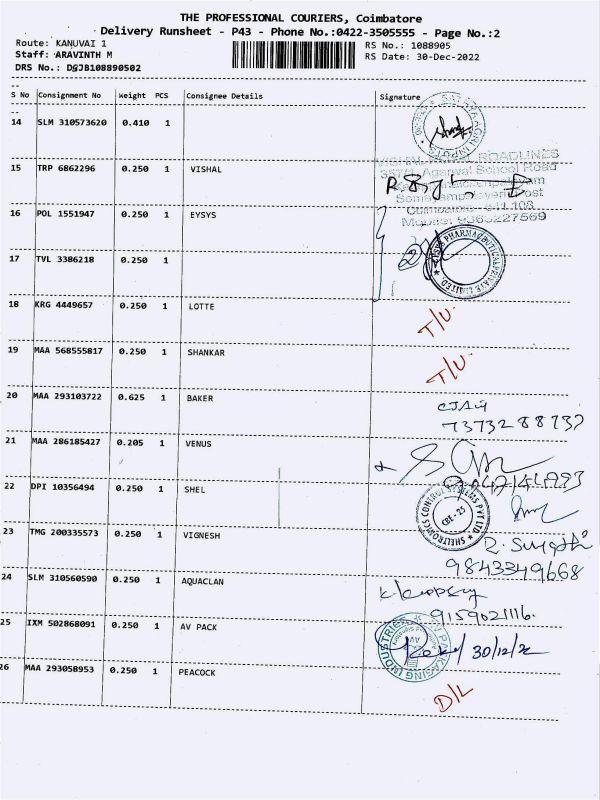 THE PROFESSIONAL COURIERS, Coimbatore
Delivery Runsheet - P43 - Phone No.:0422-3505555 - Page No.:2
Route: KANUVAI 1 RS No.: 1088905
Staff: ARAVINTH M RS Date: 30-Dec-2022
DRS No.: DSJB108890502
S No Consignment No Weight PCS Consignee Details Signature
14 SLM 310573620 0.410 1
15 TRP 6862296 0.250 1 VISHAL
ROADLINES
Agarwal School Road
Post
Coimbatore - 641 108
16 POL 1551947 0.250 1 EYSYS
17 TVL 3386218 0.250 1
PHARMACEUTICAL PRIVATE LIMITED
18 KRG 4449657 0.250 1 LOTTE T/U
19 MAA 568555817 0.250 1 SHANKAR T/U
20 MAA 293103722 0.625 1 BAKER
21 MAA 286185427 0.205 1 VENUS
22 DPI 10356494 0.250 1 SHEL
SHELTRONICS CONTROL SYSTEMS PVT LTD.
CBE-25
23 TMG 200335573 0.250 1 VIGNESH
9843349668
24 SLM 310560590 0.250 1 AQUACLAN
9159021116.
25 IXM 502868091 0.250 1 AV PACK
PACKAGING INDUSTRIES
30/12/22
26 MAA 293058953 0.250 1 PEACOCK D/L